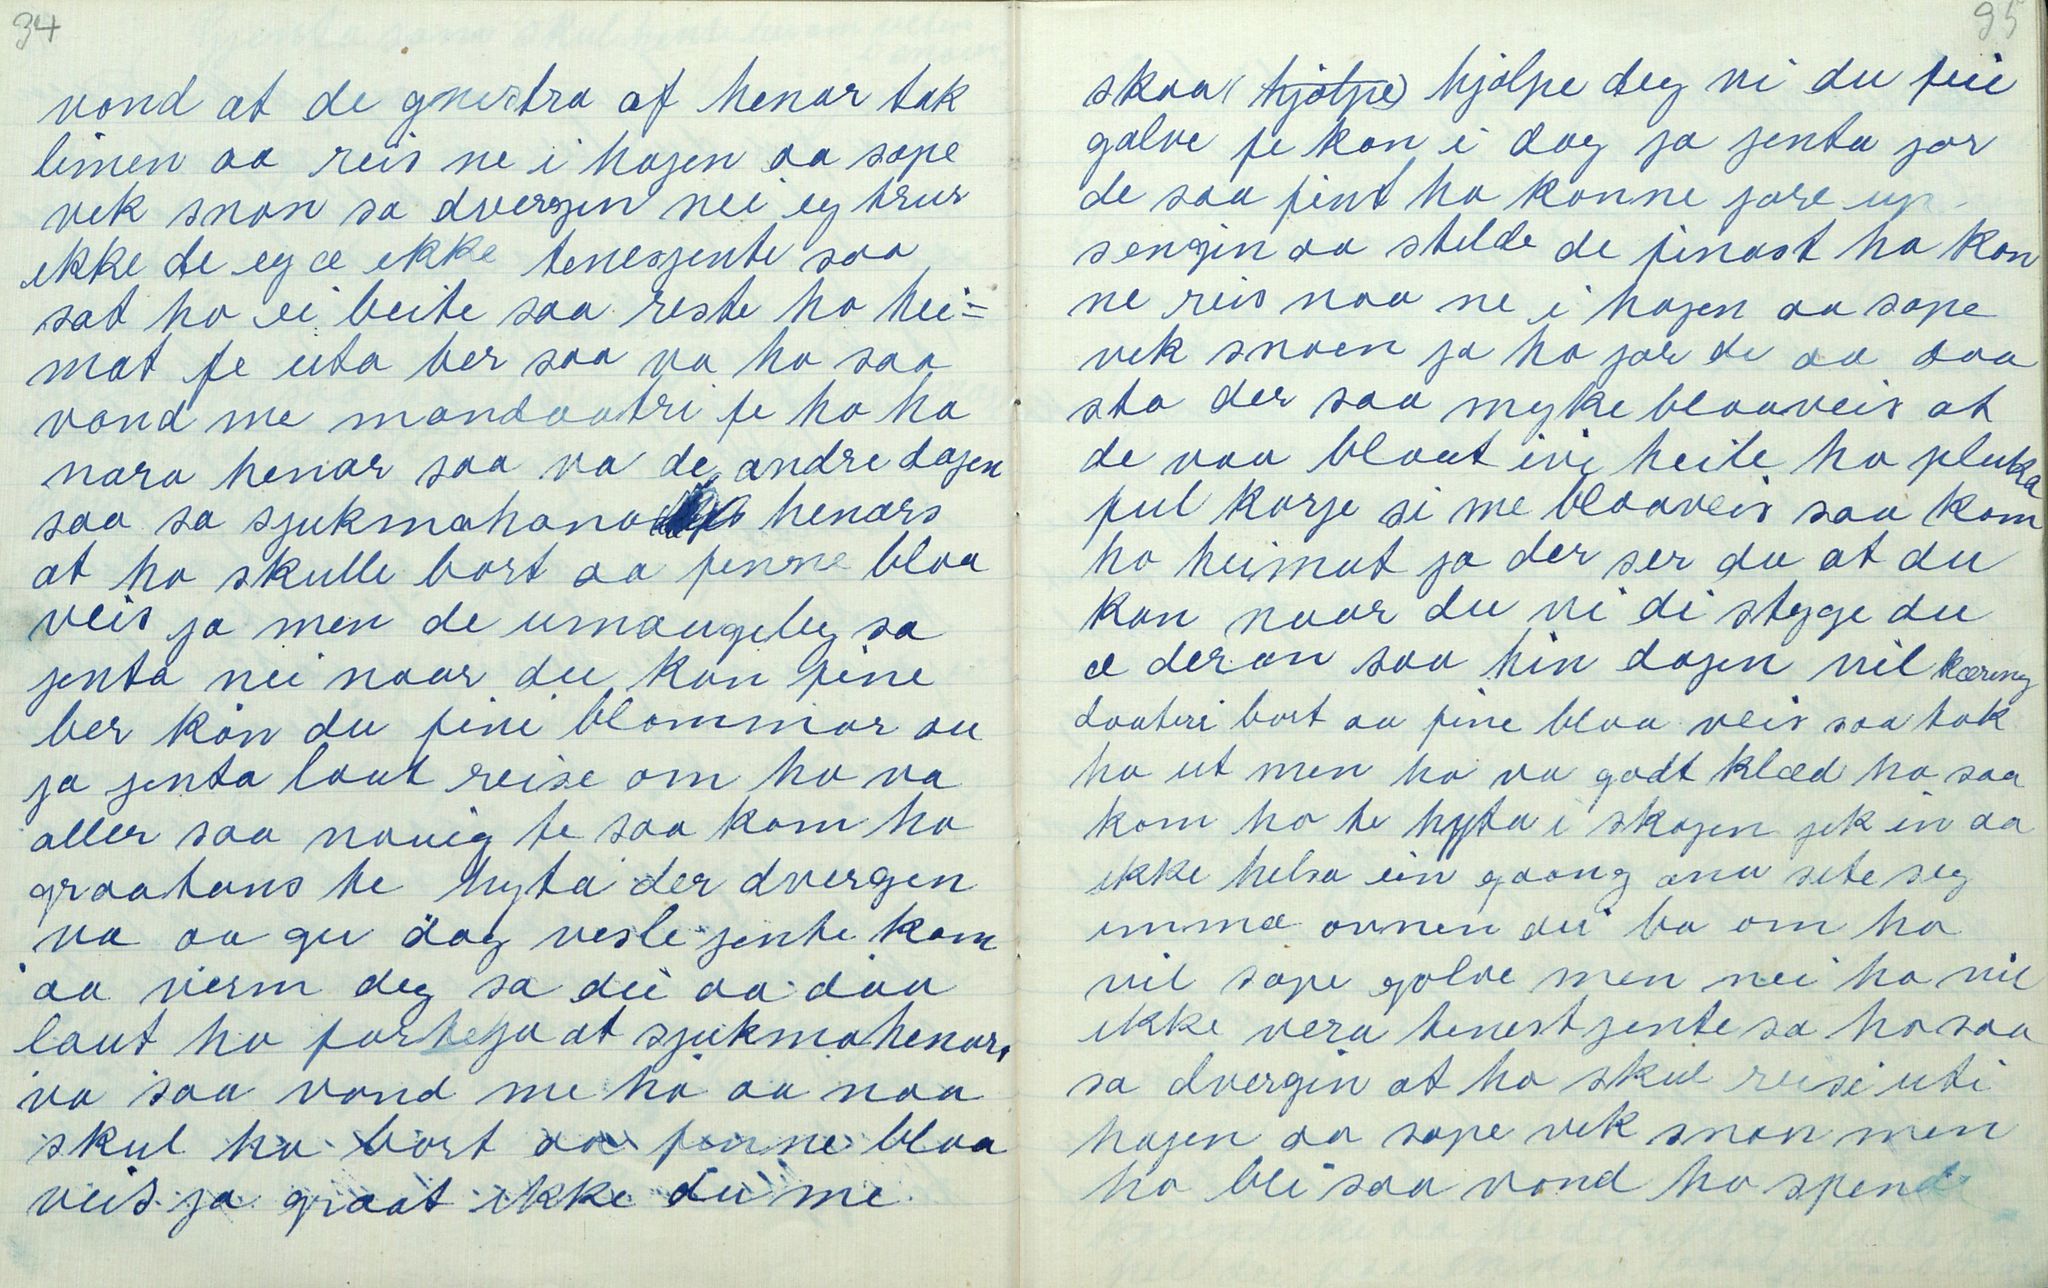 34
vond at de gneistra af henar tak
limen aa reis ne i hagen aa sope
vek snon sa dvergen nei eg trur
ikke de eg æ ikke tenesjente saa
sat ho ei beite saa reste ho hei=
mat fe uta ber saa va ho saa
vond me mandaatri fe ho ha
nara henar saa va de andre dagen
saa sa sjukmahana henars
at ho skulle bort aa finne blaa
veis ja men de umaugeleg sa
jenta nei naar du kan fine
ber kan du fini blommar au
ja jenta laut reise om ho va
aller saa nauig te saa kom ho
graatans te hyta der dvergen
va aa gu dag vesle jente kom
aa verm deg sa dei aa daa
laut ho forteja at sjukmahenars
va saa vond me ho aa naa
skul ho bort aa finne blaa
veis ja graat ikke du me
35
skaa (hjolpe) hjolpe deg vi du feii
golve fe kan i dag ja jenta jor
de saa fint ho konne jore up
sengin aa stelde de finast ho kon
ne reis naa ne i hagen aa sope
vek snoen ja ho jor de aa daa
sto der saa myke blaaveis at
de vaa blaat ivi heile ho pluka
ful korje si me blaaveis saa kom
ho heimat ja der ser du at du
kan naar du vi di stygge du
æ deran saa hin dagen vil kæring
daateri bort aa fine blaa veis saa tok
ho ut men ho va godt klæd ho saa
kom ho te hyta i skogen jek in aa
ikke helsa ein gaang ana sete seg
imma ovnen dei ba om ho
vil sope golve men nei ho vil
ikke vera tenestjente sa ho saa
sa dvergin at ho skul reise uti
hagen aa sope vek snon men
ho blei saa vond ho spende